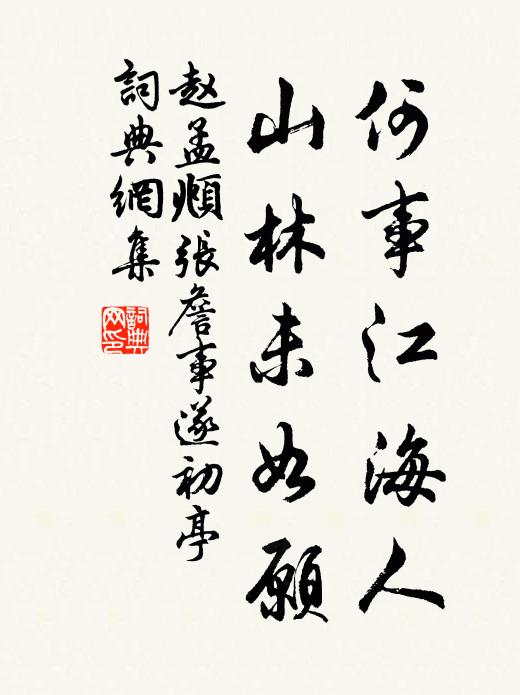 何事江海人
山林未如願
赵孟頫張詹事遂初亭
詞典網集
詞典网印